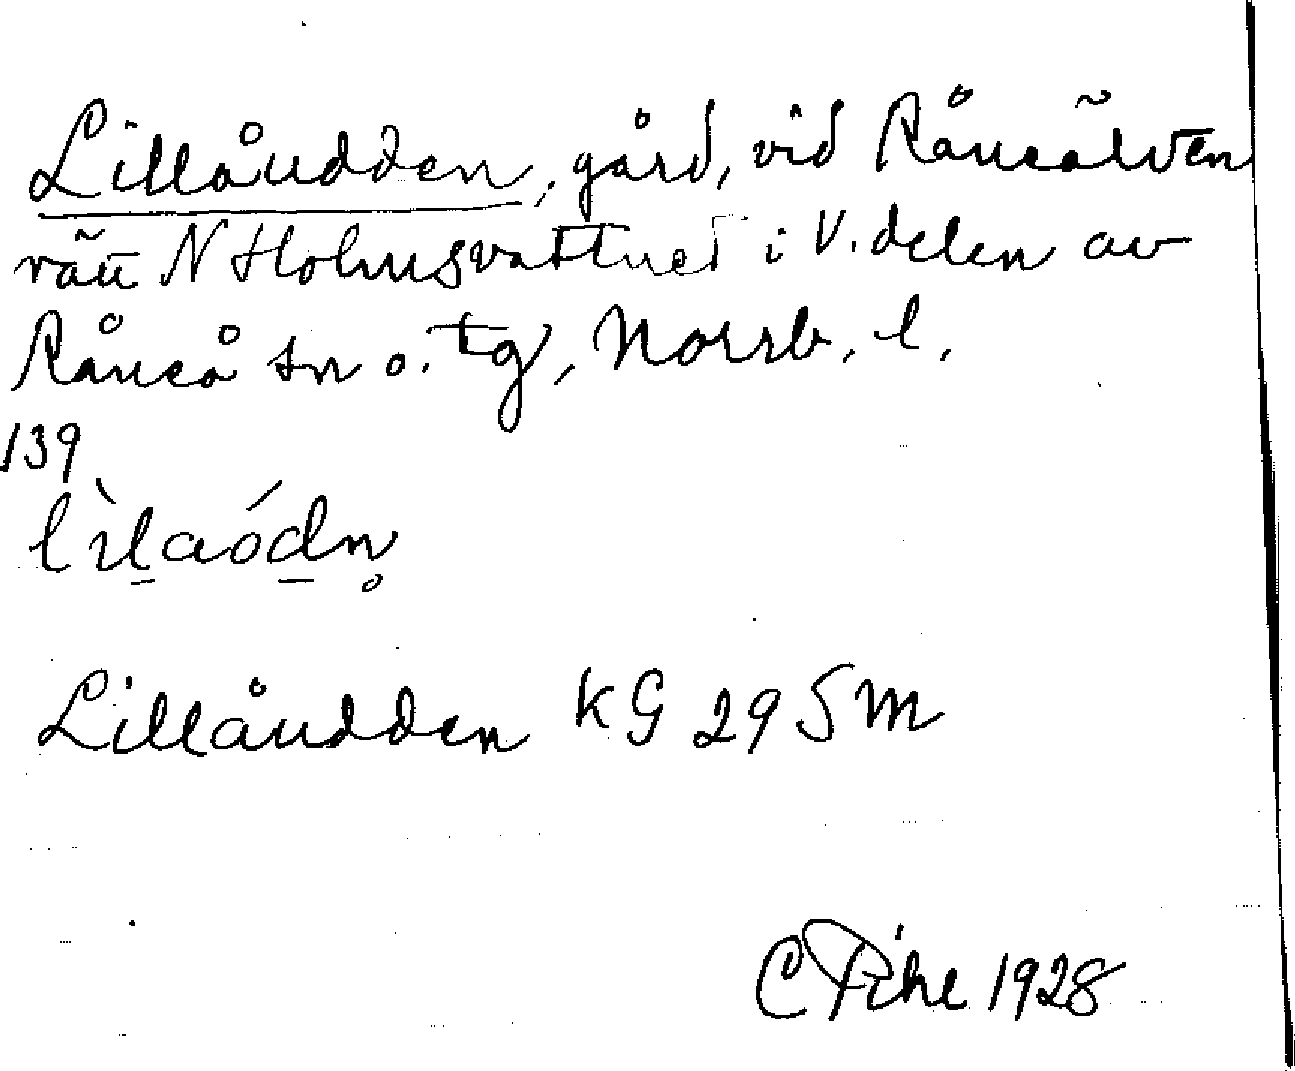 Lillåudden, gård, vid Råneälven
rätt N Holmsvattnet i V. delen av
Råneå sn o. tg, Norrb. l.
139
lìl̠aód̠n̥
Lillåudden KG 29 SM
C Pihl 1928